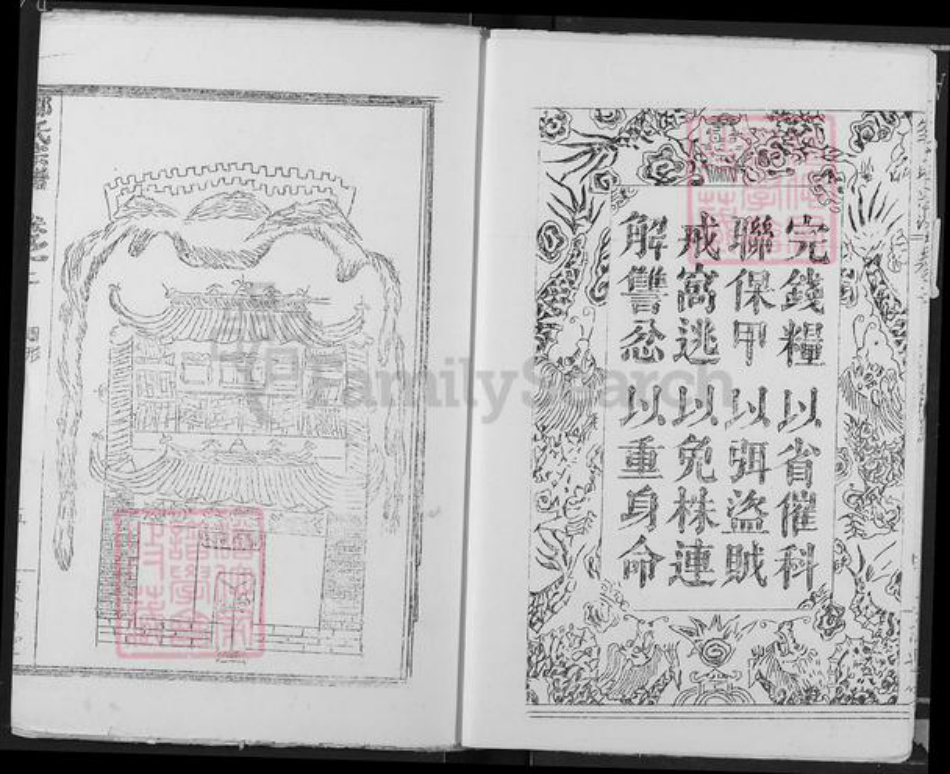 完錢糧以省催科
聯保甲以弭盜賊
戒窩逃以免株連
解讐忿以重身命
圖形
FamilySearch